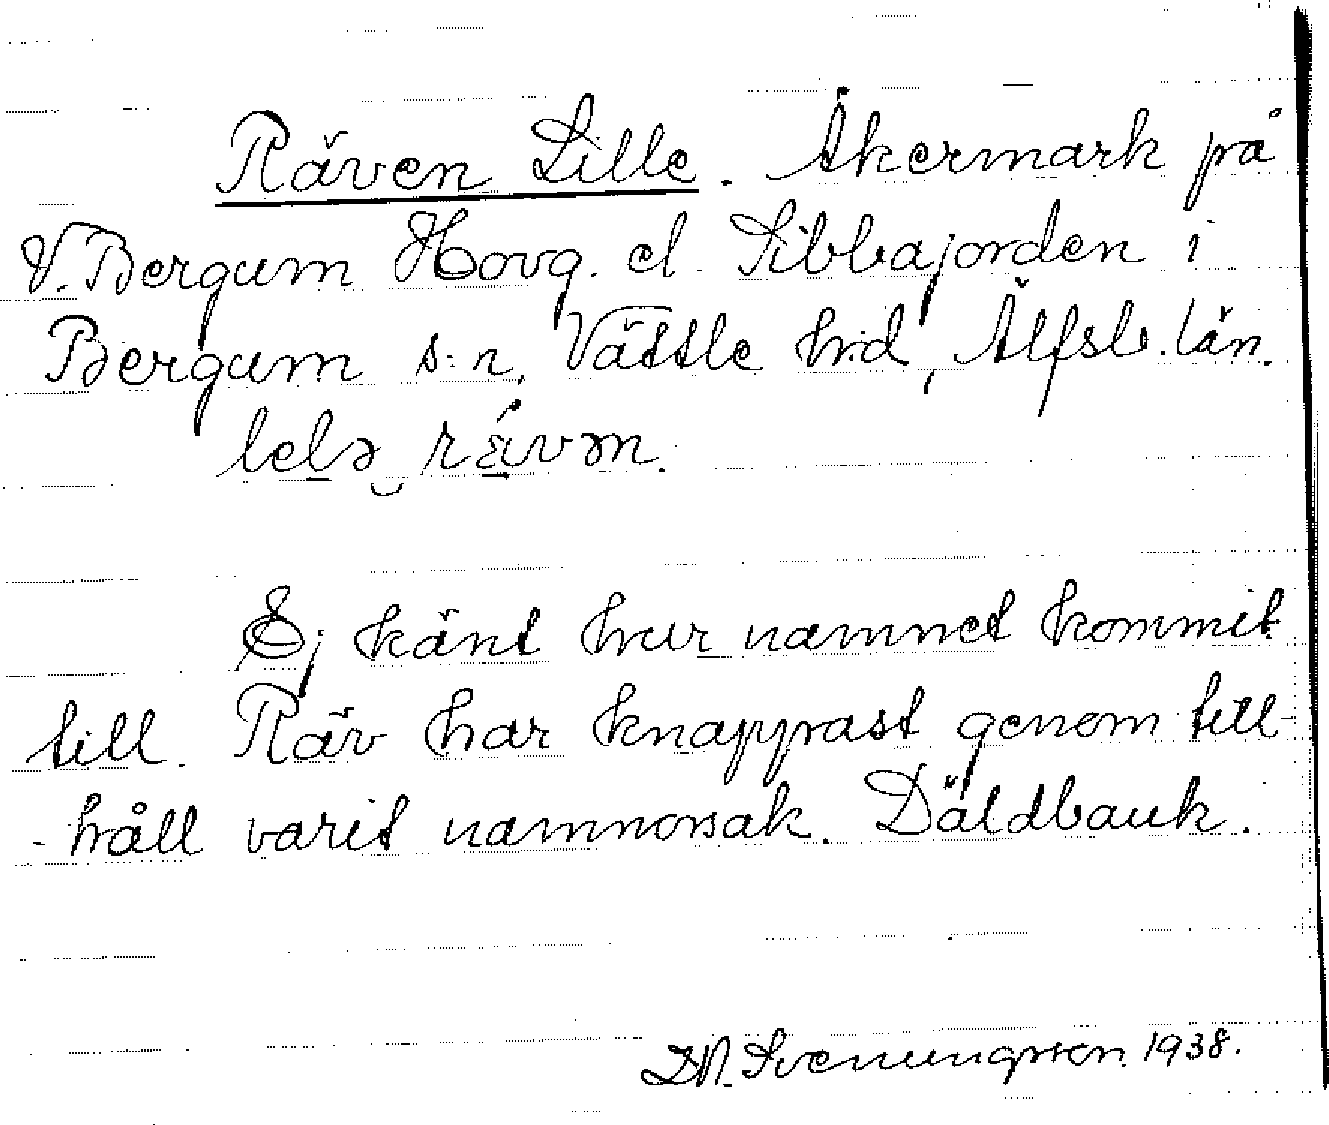 Räven Lille. Åkermark på
V. Bergum Hovg. el. Sibbajorden i
Bergum s:n, Vättle hd, Älfsb. län.
lelə rävən.
Ej känt hur namnet kommit
till. Räv har knappast genom till-
-håll varit namnorsak. Däldbauk.
Svenungsson 1938.